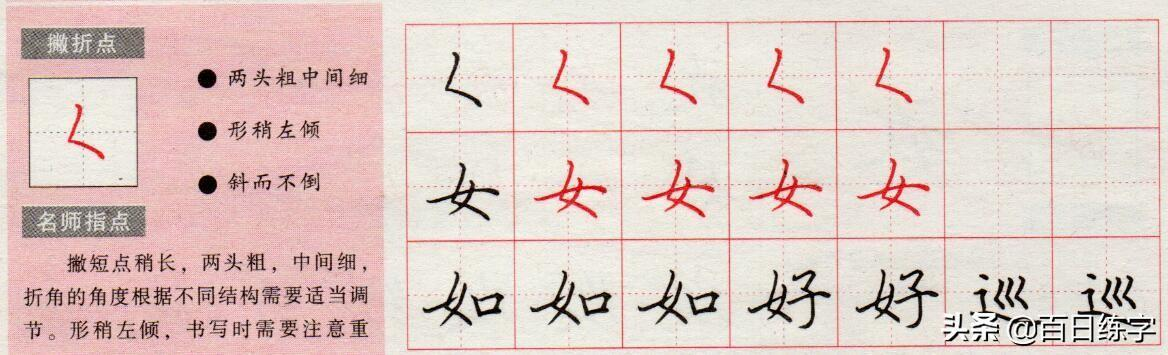 撇折点
两头粗中间细
形稍左倾
斜而不倒
名师指点
撇短点稍长，两头粗，中间细，
折角的角度根据不同结构需要适当调
节。形稍左倾，书写时需要注意重
𡿨 𡿨 𡿨 𡿨 𡿨
女 女 女 女 女
如 如 如 好 好 巡 巡
头条 @百日练字